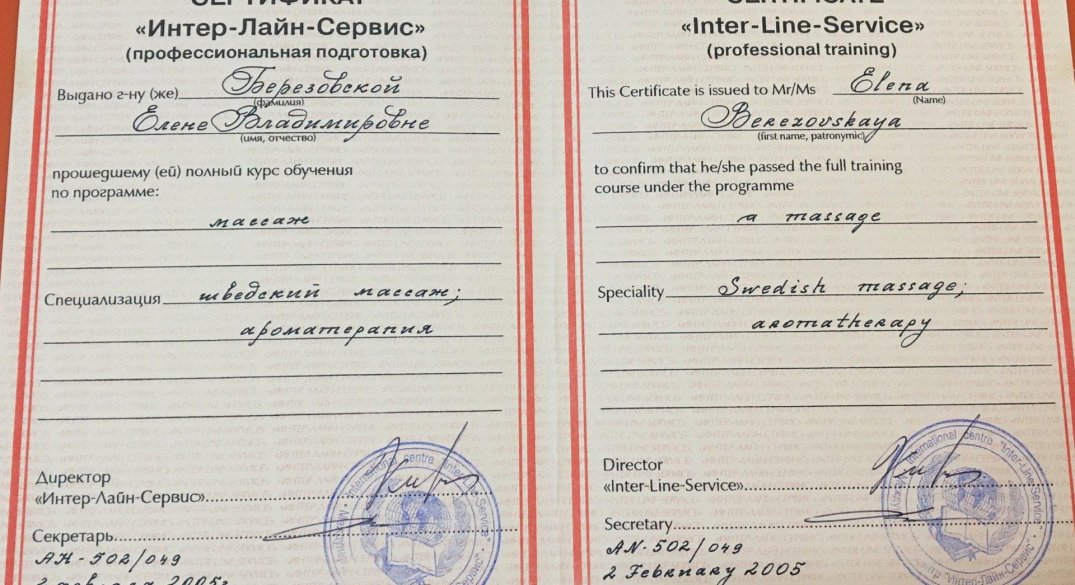 СЕРТИФИКАТ
«Интер-Лайн-Сервис»
(профессиональная подготовка)
Выдано г-ну (же) Березовской
(фамилия)
Елене Владимировне
(имя, отчество)
прошедшему (ей) полный курс обучения
по программе:
массаж
Специализация шведский массаж;
ароматерапия
Директор
«Интер-Лайн-Сервис»
Секретарь
АН-502/049
2 февраля 2005г
CERTIFICATE
«Inter-Line-Service»
(professional training)
This Certificate is issued to Mr/Ms Elena
(Name)
Berezovskaya
(first name, patronymic)
to confirm that he/she passed the full training
course under the programme
a massage
Speciality Swedish massage;
aromatherapy
Director
«Inter-Line-Service»
Secretary
AN-502/049
2 February 2005
International centre "Inter-Line-Service"